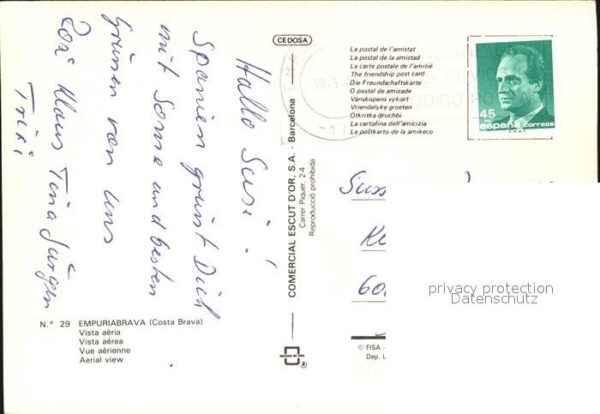 Hallo Susi!
Spanien grüsst Dich
mit Sonne und besten
Grüssen von uns
Rosi Klaus Tina Jürgen
Trixi
N.° 29 EMPURIABRAVA (Costa Brava)
Vista aèria
Vista aérea
Vue aérienne
Aerial view
CEDOSA
COMERCIAL ESCUT D'OR, S.A. - Barcelona
Carrer Piquer, 2-4
Reproducció prohibida
La postal de l'amistat
La postal de la amistad
La carte postale de l'amitié
The friendship post card
Die Freundschaftskarte
O postal de amizade
Vänskapens vykort
Vriendelyke groeten
Otkritka druchbi
La cartolina dell'amicizia
La poŝtkarto de la amikeco
45
españa correos
privacy protection
Datenschutz
© FISA -
Dep. L